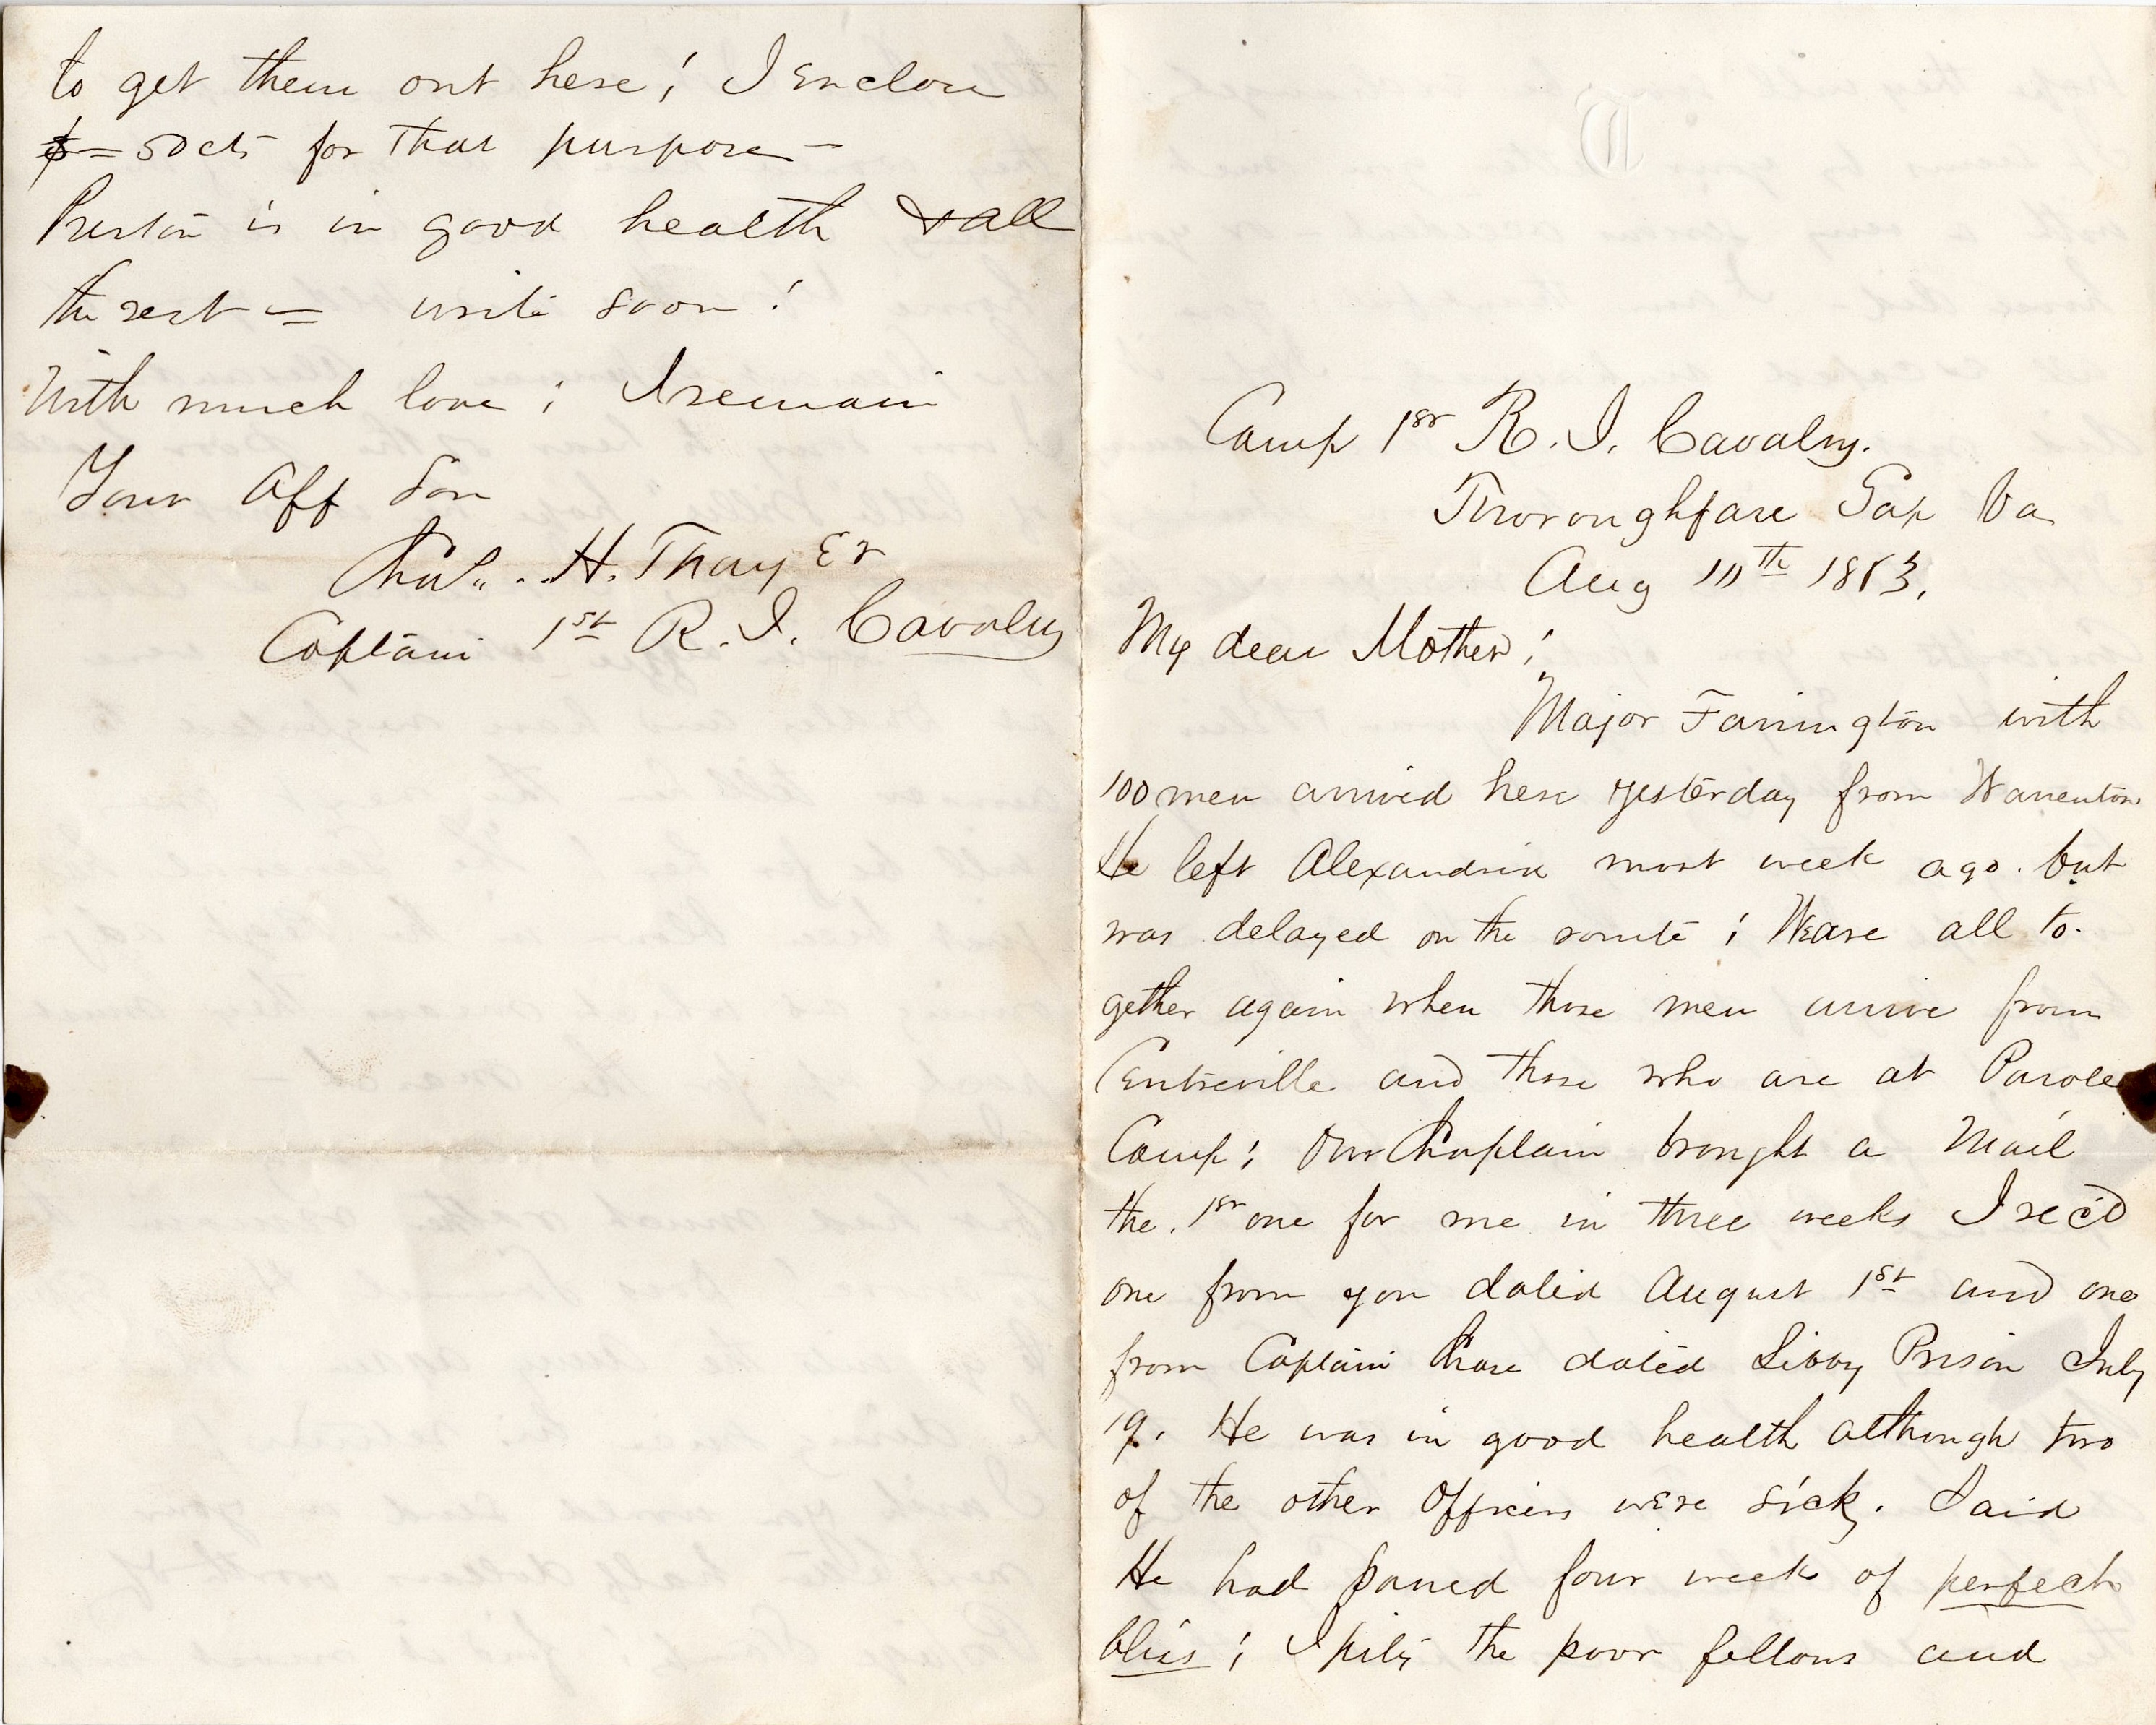 Camp 1st R. I. Cavalry.
Thoroughfare Gap Va
Aug 10th 1863.
My dear Mother;
Major Farrington with
100 men arrived here yesterday from Warrenton
He left Alexandria most week ago. but
was delayed on the route; We are all to-
gether again when those men arrive from
Centreville and those who are at Parole
Camp; Our Chaplain brought a Mail
the 1st one for me in three weeks I rec'd
one from you dated August 1st and one
from Captain Chase dated Libby Prison July
19. He was in good health although two
of the other Officers were sick. Said
He had passed four week of perfect
bliss; I pity the poor fellows and
to get them out here; I Enclose
$= 50 cts for that purpose -
Preston is in good health & all
the rest = write soon!
With much love; I remain
Your Aff Son
Chas. H. Thayer
Captain 1st R. I. Cavalry